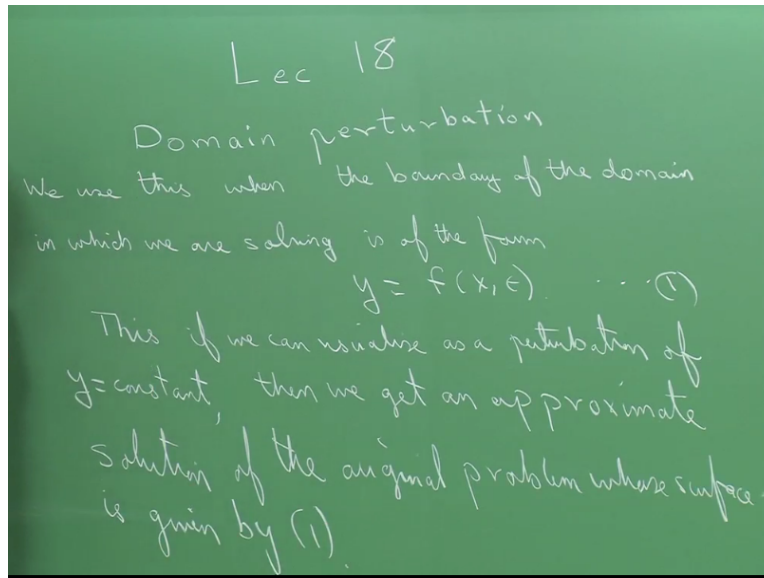 Lec 18
Domain perturbation
We use this when the bounday of the domain
in which we are solving is of the form
y = f(x, ϵ) ... (1)
This if we can visualise as a petubation of
y = constant, then we get an approximate
solution of the original problem whose surface
is given by (1).